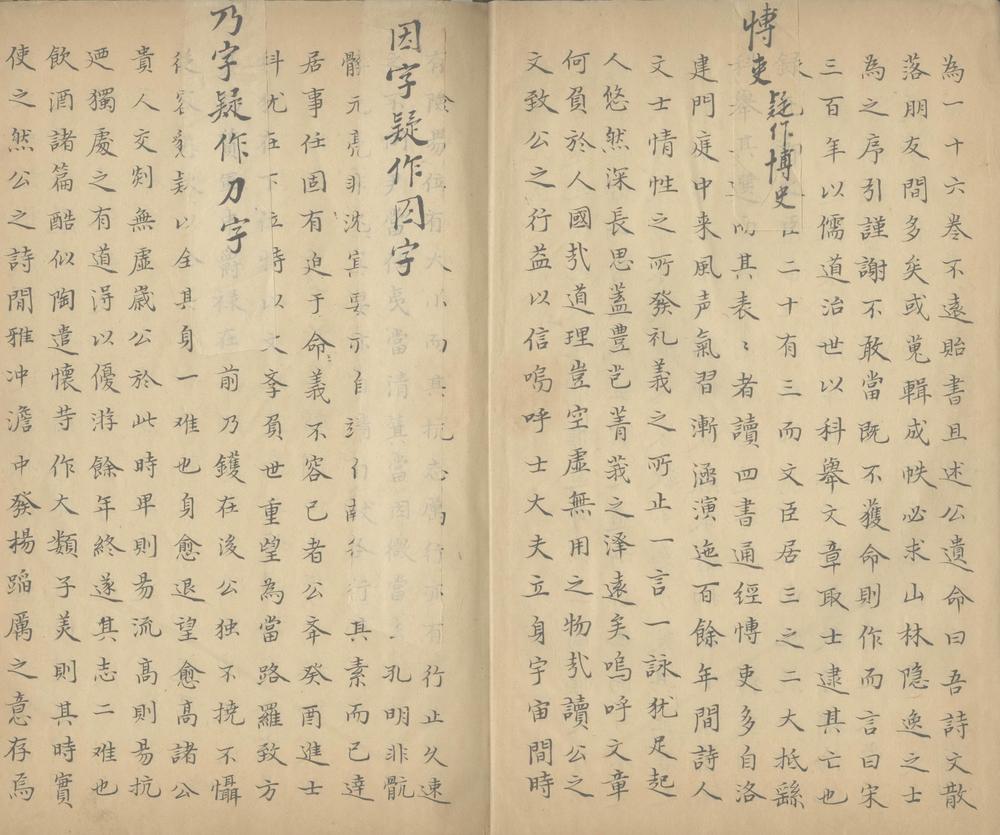 為一十六卷不遠貽書且述公遺命曰吾詩文散
落朋友間多矣或蒐輯成帙必求山林隐逸之士
為之序引謹謝不敢當既不獲命則作而言曰宋
三百年以儒道治世以科舉文章取士逮其亡也
二十有三而文臣居三之二大抵繇
其表〻者讀四書通經愽吏多自洛
愽吏疑作博史
建門庭中来風声氣習漸涵演迤百餘年間詩人
文士情性之所發礼義之所止一言一詠犹足起
人悠然深長思蓋豊芑菁莪之泽遠矣嗚呼文章
何負於人國㢤道理豈空虚無用之物㢤讀公之
文致公之行益以信嗚呼士大夫立身宇宙間時
行止久速
孔明非骯
因字疑作囙字
髒元亮非沈冥要示自行其素而已逹
居事任固有迫于命義不容已者公夲癸酉進士
科尤在下位時以文斈負世重望為當路羅致方
前乃鑊在後公独不撓不懾
乃字疑作刀字
以全其身一难也身愈退望愈髙諸公
貴人交剡無虚嵗公於此時卑則昜流髙則昜抗
迺獨處之有道淂以優游餘年終遂其志二难也
飲酒諸篇酷似陶遣懷䓁作大類子羙則其時實
使之然公之詩閒雅冲澹中發楊蹈厲之意存焉